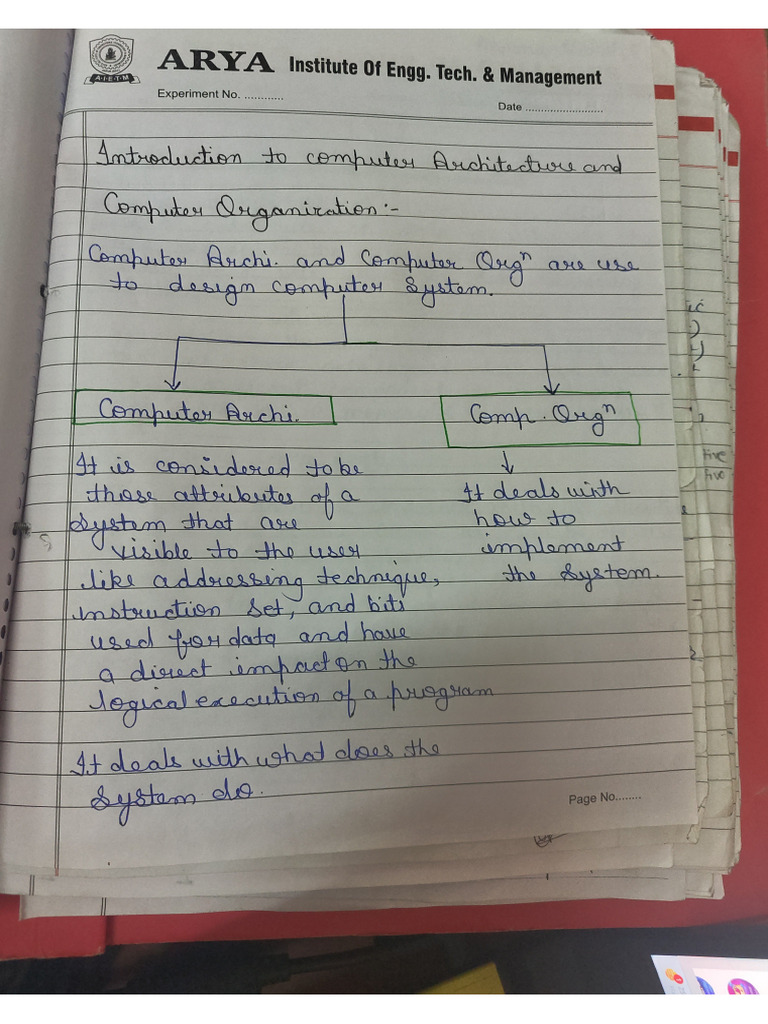 ARYA Institute Of Engg. Tech. & Management
A·I·E·T·M
Experiment No. ............
Date .........................
Introduction to computer Architecture and
Computer Organization:-
Computer Archi. and Computer Orgⁿ are use
to design computer System.
Computer Archi.
Comp. Orgⁿ
It is considered to be
those attributes of a
System that are
visible to the user
like addressing technique,
instruction set, and bits
used for data and have
a direct impact on the
logical execution of a program
It deals with what does the
System do.
It deals with
how to
implement
the System.
Page No........
five
five